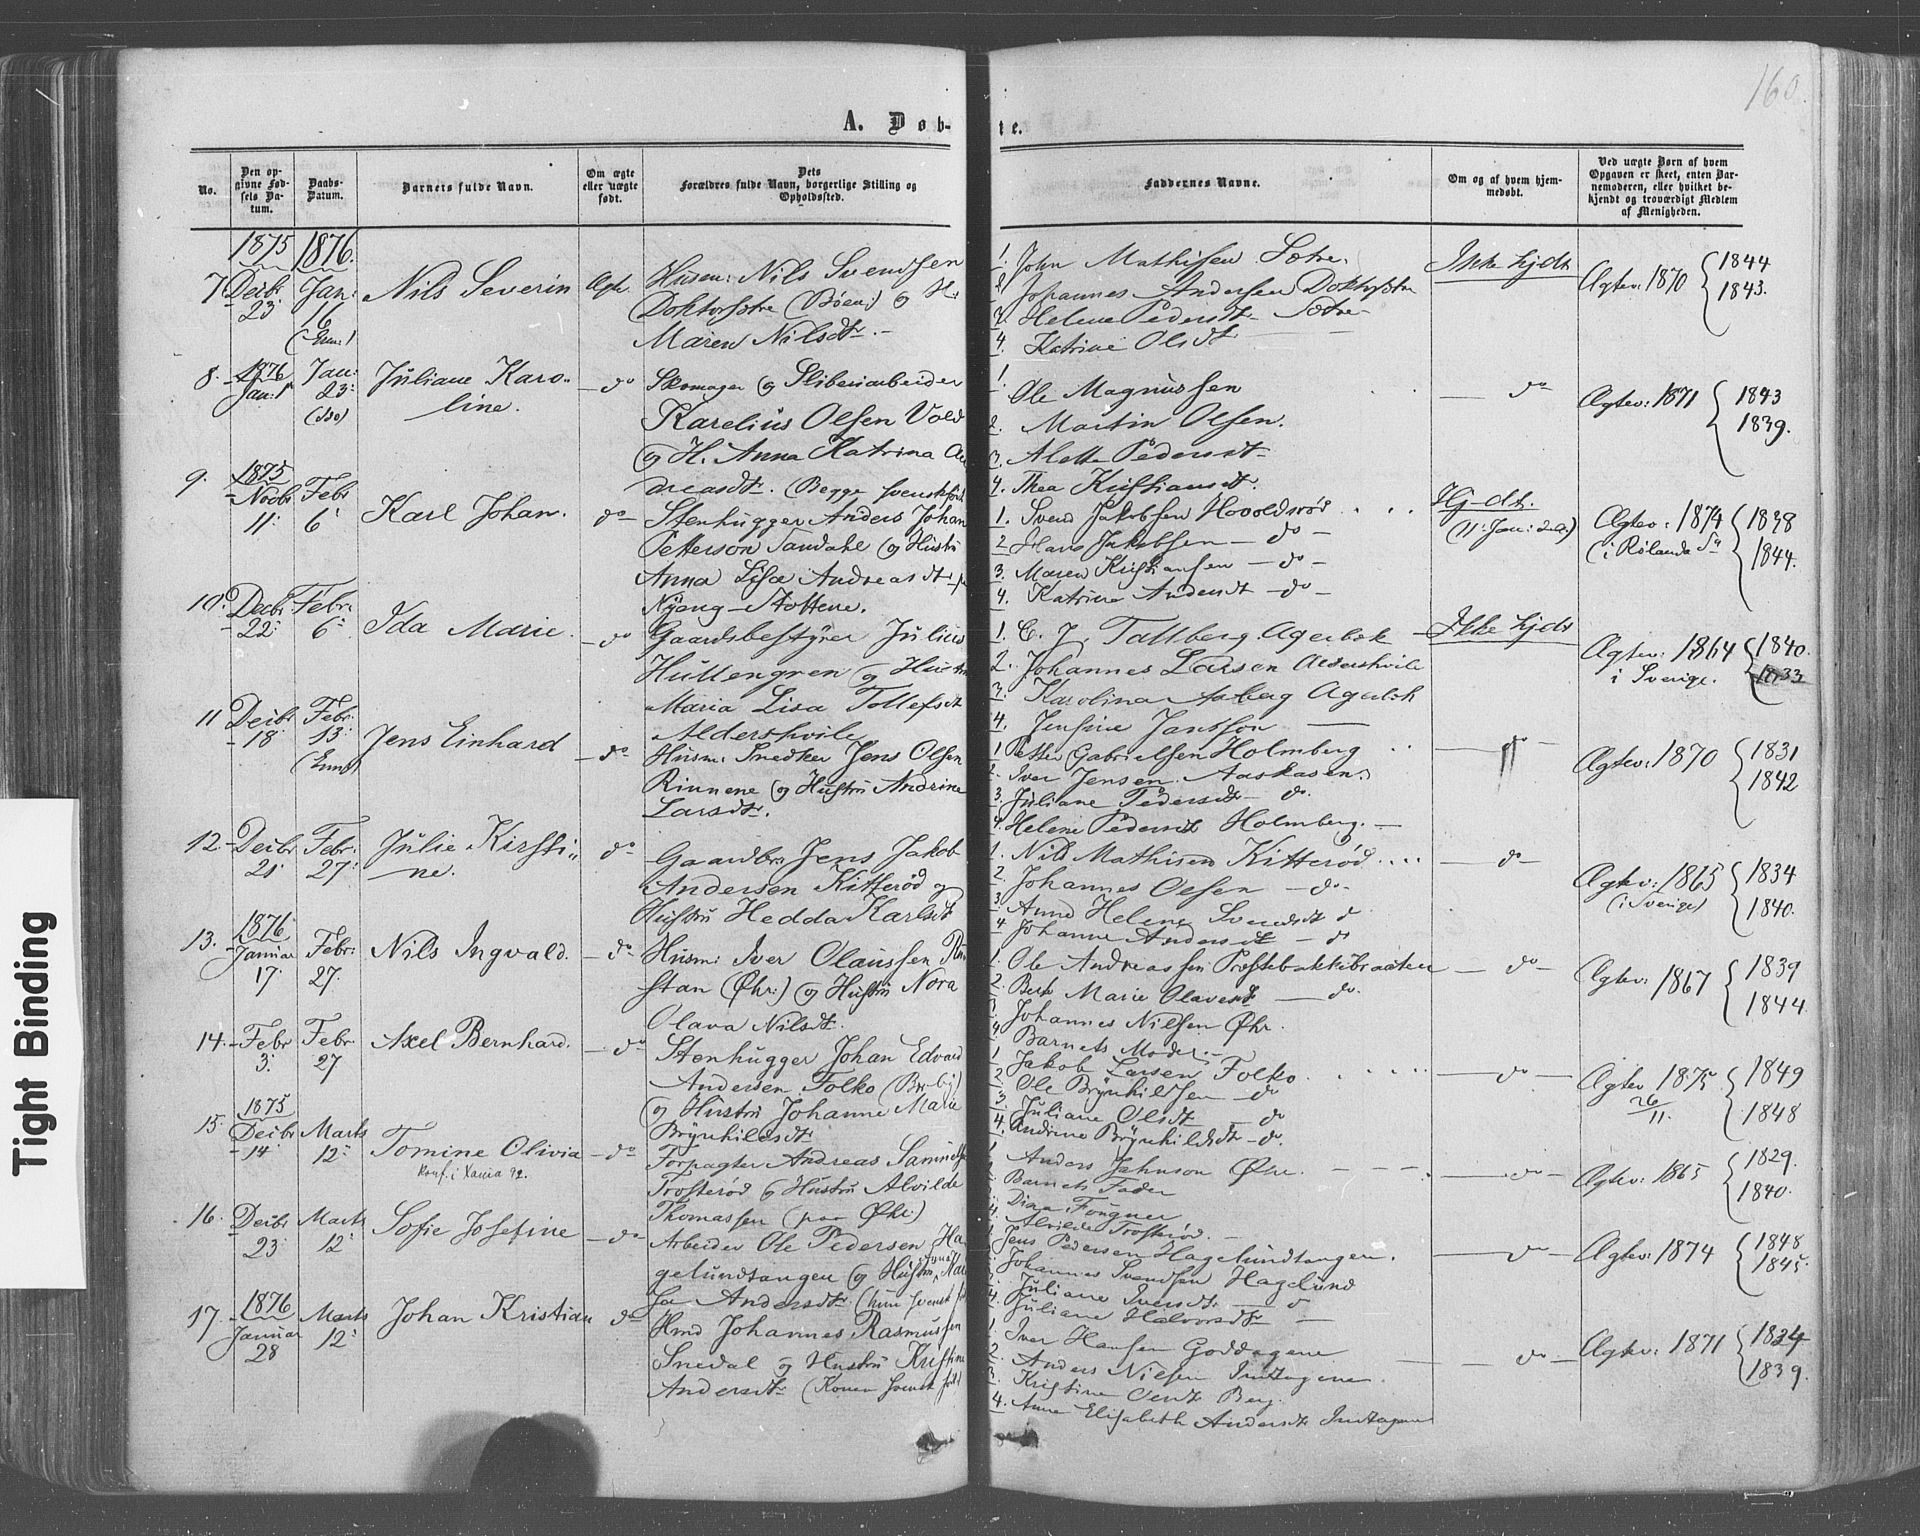 160.
A. Døb-
te.
No.
Den op-
givne Fød-
sels Da-
tum.
Daabs-
Datum.
Barnets fulde Navn.
Om ægte
eller uægte
født.
Dets
Forældres fulde Navn, borgerlige Stilling og
Opholdssted.
Faddernes Navne.
Om og af hvem hjem-
medøbt.
Ved uægte Børn af hvem
Opgaven er skeet, enten Bar-
nemoderen, eller hvilket be-
kjendt og troværdigt Medlem
af Menigheden.
7 1875 Decbr 23
1876. Jan: 16
Nils Severin
Ægte.
Husm: Nils Svendsen
Doktorsætre (Böen) og H:
Maren Nilsdtr. -
1. John Mathisen Sætre.
2 Johannes Andersen
3. Helene Pedersdtr Sætre
4. Katrine Olsdtr
Ikke hjdt
Ægtev: 1870 { 1844
1843.
8. 1876 Jan: 1
Jan: 23: (do)
Juliane Karo-
line.
- do
Skomager og Sliberiarbeider
Karelius Olsen Vold
og H. Anna Katrina
dreasdtr. (Begge
1. Ole Magnussen
2. Martin Olsen.
3. Alette Pedersdtr
4. Thea Kristiansdtr.
- do
Ægtev: 1871 { 1843
1839.
9. 1875 Novbr 11:
Febr 6
Karl Johan.
do
Stenhugger Anders Johan
Petterson Tandahl og Hustru
Anna Lisa Andreasdtr
Nyeng-Stottene.
1. Svend Jakobsen Hovoldsrød
2 Hans Jakobsen - do -
3. Maren Kristiansen - do -
4. Katrine Andersdt - do -
Hjdt.
(11: Jan:
Ægtev: 1874 { 1838
(i Rölanda Sn 1844.
10. Decbr 22:
Febr: 6
Ida Marie.
- do
Gaardsbestyrer Julius
Hultengren og Hustru
Maria Lisa Tollefsdt
Aldershvile
1. C. J. Tallberg Agerbek
2. Johannes Larsen Aldershvile
3. Karolina Agerbek
4. Jensine
Ikke hjdt
Ægtev: 1864 { 1840.
i Sverige. 1833
11 Decbr 18
Febr. 13:
Jens Einhard
- do
Husm: Snedker Jens Olsen
Rinnene og Hustru Andrine
Larsdtr.
1 Petter Gabrielsen Holmberg
2. Iver Jensen Aaskasen.
3. Juliane Pedersdt - do.
4. Helene Pedersdt Holmberg. -
do -
Ægtev: 1870 { 1831
1842
12. Decbr 21
Febr: 27:
Julie Kirsti-
ne.
do
Gaardbr: Jens Jakob
Andersen Kitterød og
Hustru Hedda Karlsdt
1. Nils Mathisen Kitterød
2. Johannes Olsen - do -
3. Anne Helene Svendsdt d
4 Johanne Andersdt - d
- do -
Ægtev: 1865 { 1834
(i Sverige) 1840.
13. 1876 Januar 17:
Febr: 27.
Nils Ingvald.
- do
Husm: Iver Olaussen
stan (Øhr:) og Hustru Nora
Olava Nilsdt.
1. Ole Andreassen Prestebakkebraaten
2. Marie Olavesdt - do.
3 Johannes Nilsen Øhr.
4 Barnets Moder. -
- do -
Ægtev: 1867 { 1839
1844.
14. Febr 3:
Febr 27
Axel Bernhard.
- do
Stenhugger Johan Edvard
Andersen Folko
og Hustru Johanne Marie
Brynhildsdtr
1 Jakob Larsen Folko
2 Ole Brynhildsen - do
3. Juliane Olsdt do
4. Andrine Brynhildsdt - do.
do -
Ægtev 1875 { 1849
26/11. 1848
15. 1875 Decbr 14
Marts 12:
Tomine Olivia
Konf. i Xania 92.
- do
Forpagter Andreas
Trosterød og Hustru Alvilde
Thomassen (paa Øhr:)
1 Anders Jahnson Øhr.
Barnets Fader
Dina Fougner
4. Alvilde Trosterød. -
do -
Ægtev: 1865 { 1829.
1840.
16. Decbr 23
Marts 12:
Sofie Josefine
- do
Arbeider Ole Pedersen Ha
gelundtangen og Hustru
Andersdtr. (hun svensk
1. Jens Pedersen Hagelundtangen.
Johannes Svendsen Hagelund
Juliane Iversdt - d
4. Juliane Halvorsdt -
do
Ægtev: 1874 { 1848
1845.
17. 1876 Januar 28
Marts 12:
Johan Kristian
do
Hmd Johannes Rasmussen
Snedal og Hustru Kristine
Andersdt (Konen svensk født
1. Iver Hansen Goddagene
2. Anders Nielsen Inntagene.
3 Kristine Olsdt Berg.
4. Anne Elisabeth Andersdt Inntagene
do -
Ægtev: 1871 { 1834
1839.
Tight Binding